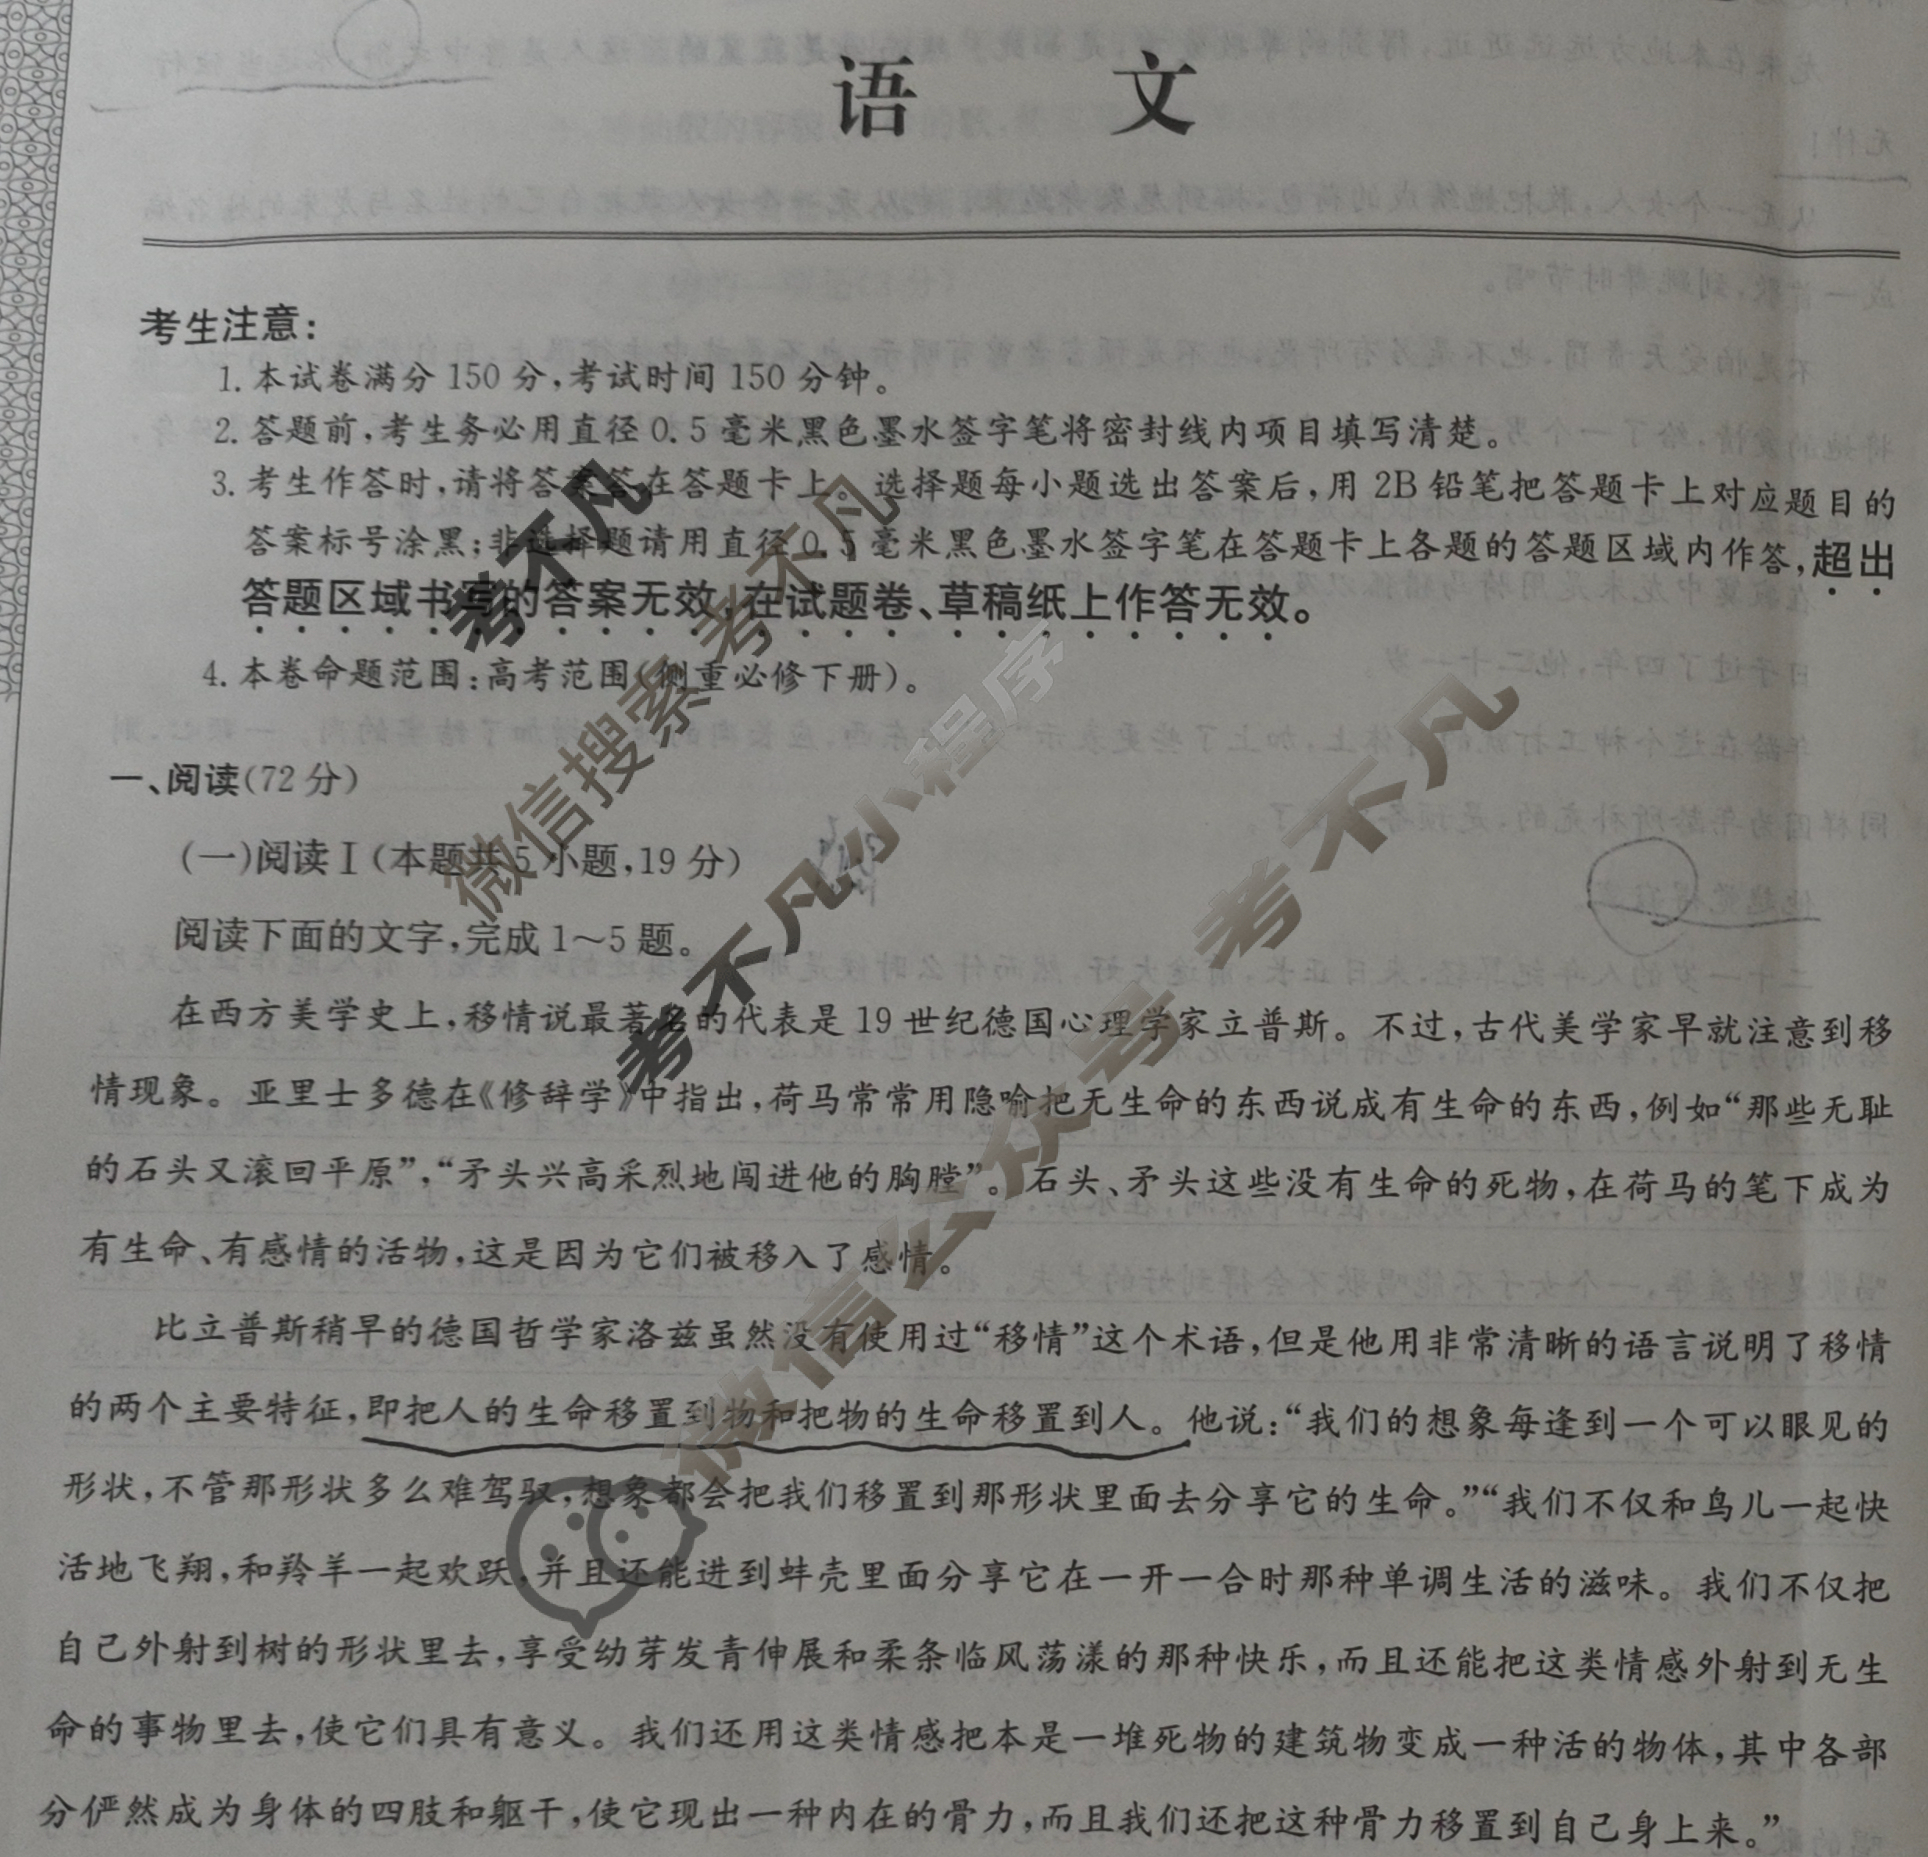 语 文
考生注意：
1. 本试卷满分 150 分，考试时间 150 分钟。
2. 答题前，考生务必用直径 0.5 毫米黑色墨水签字笔将密封线内项目填写清楚。
3. 考生作答时，请将答案答在答题卡上。选择题每小题选出答案后，用 2B 铅笔把答题卡上对应题目的
答案标号涂黑；非选择题请用直径 0.5 毫米黑色墨水签字笔在答题卡上各题的答题区域内作答，超出
答题区域书写的答案无效，在试题卷、草稿纸上作答无效。
4. 本卷命题范围：高考范围(侧重必修下册)。
一、阅读(72 分)
(一)阅读Ⅰ(本题共 5 小题，19 分)
阅读下面的文字，完成 1～5 题。
在西方美学史上，移情说最著名的代表是 19 世纪德国心理学家立普斯。不过，古代美学家早就注意到移
情现象。亚里士多德在《修辞学》中指出，荷马常常用隐喻把无生命的东西说成有生命的东西，例如“那些无耻
的石头又滚回平原”，“矛头兴高采烈地闯进他的胸膛”。石头、矛头这些没有生命的死物，在荷马的笔下成为
有生命、有感情的活物，这是因为它们被移入了感情。
比立普斯稍早的德国哲学家洛兹虽然没有使用过“移情”这个术语，但是他用非常清晰的语言说明了移情
的两个主要特征，即把人的生命移置到物和把物的生命移置到人。他说：“我们的想象每逢到一个可以眼见的
形状，不管那形状多么难驾驭，想象都会把我们移置到那形状里面去分享它的生命。”“我们不仅和鸟儿一起快
活地飞翔，和羚羊一起欢跃，并且还能进到蚌壳里面分享它在一开一合时那种单调生活的滋味。我们不仅把
自己外射到树的形状里去，享受幼芽发青伸展和柔条临风荡漾的那种快乐，而且还能把这类情感外射到无生
命的事物里去，使它们具有意义。我们还用这类情感把本是一堆死物的建筑物变成一种活的物体，其中各部
分俨然成为身体的四肢和躯干，使它现出一种内在的骨力，而且我们还把这种骨力移置到自己身上来。”
考不凡
微信搜索 考不凡
考不凡小程序
微信公众号 考不凡